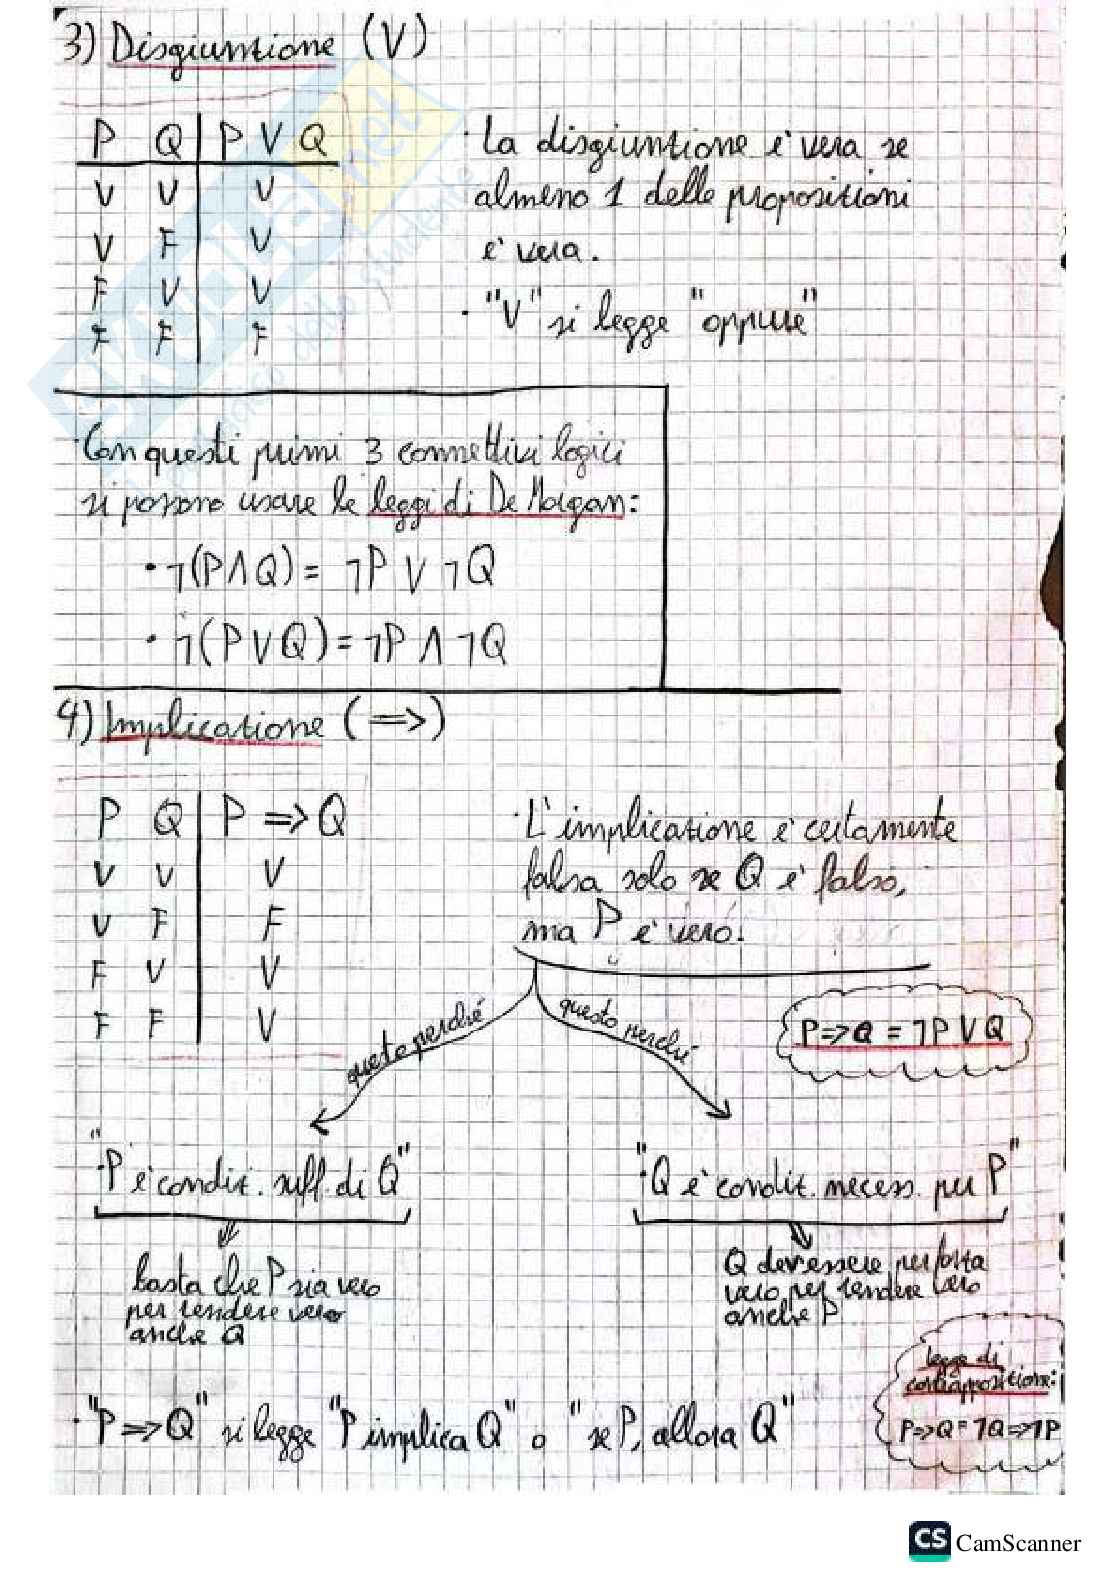 3) Disgiunzione (V)
P Q P V Q
V V V
V F V
F V V
F F F
· La disgiunzione è vera se
almeno 1 delle proposizioni
è vera.
· "V" si legge "oppure"
· Con questi primi 3 connettivi logici
si possono usare le leggi di De Morgan:
• ¬(P∧Q) = ¬P ∨ ¬Q
• ¬(P∨Q) = ¬P ∧ ¬Q
4) Implicazione (=>)
P Q P => Q
V V V
V F F
F V V
F F V
· L'implicazione è certamente
falsa solo se Q è falso,
ma P è vero.
questo perché
questo perché
P=>Q = ¬P V Q
"P è condiz. suff. di Q"
"Q è condiz. necess. per P"
basta che P sia vero
per rendere vero
anche Q
Q dev'essere per forza
vero per rendere vero
anche P
legge di
contrapposizione:
P=>Q = ¬Q=>¬P
· "P=>Q" si legge "P implica Q" o "se P, allora Q"
SKUOLA.net
CS CamScanner